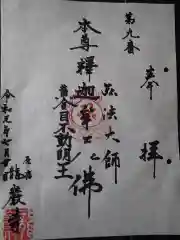 第九番
奉拝
弘法大師
本尊釋迦牟尼佛
黄金目不動明王
令和元年七月
龍巖寺